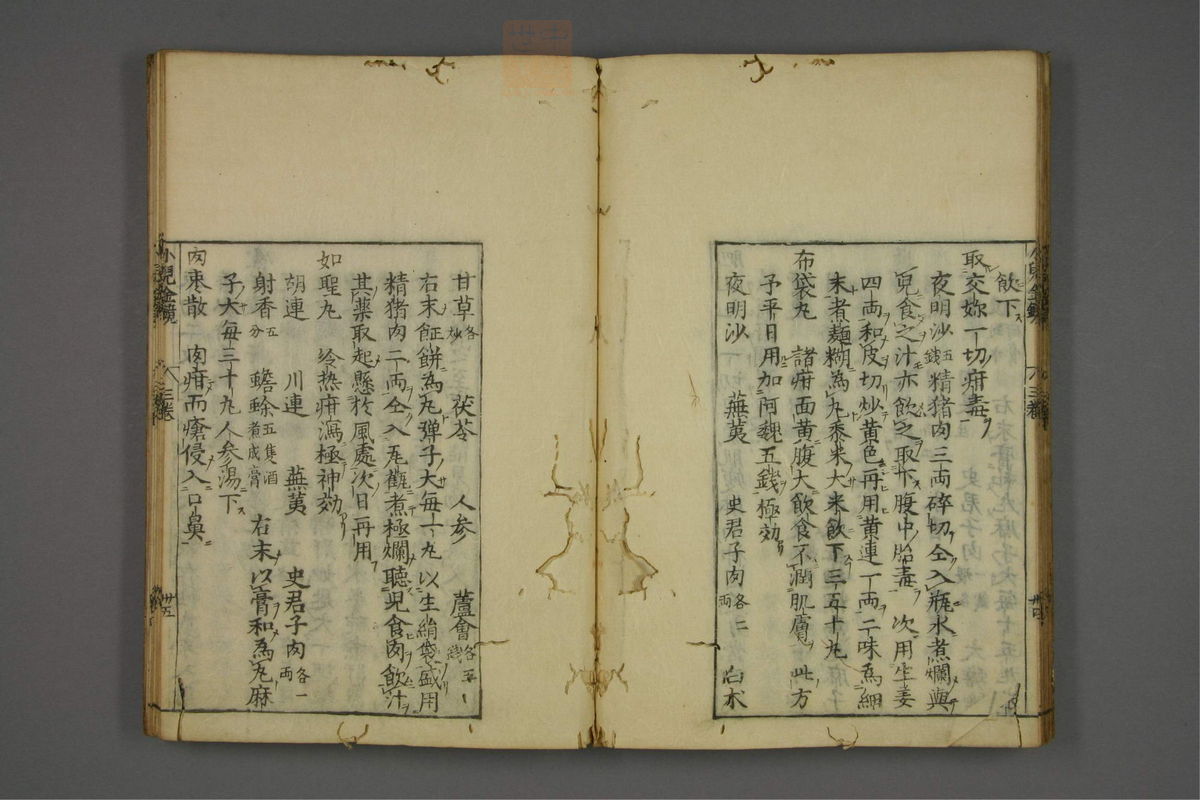 飲下
取交妳一切疳毒
夜明沙五錢精猪肉三両碎切仝入瓶水煮爛與
兒食之汁亦飲之取下腹中胎毒次用生姜
四両和皮切炒黄色再用黄連一両二味為細
末煮麺糊為丸黍米大米飲下三五十丸
布袋丸 諸疳面黄腹大飲食不潤肌膚此方
予平日用加阿魏五錢極効
夜明沙 蕪荑 史君子肉各二両 白朮
甘草各炒 茯苓 人参 蘆會各五錢
右末飪餅為丸弾子大每一丸以生絹袋盛用
精猪肉二両仝入瓦觀煮極爛聽児食肉飲汁
其薬取起懸於風處次日再用
如聖丸 冷热疳瀉極神効
胡連 川連 蕪荑 史君子肉各一両
射香五分 蟾蜍五隻酒煮成膏 右末以膏和為丸麻
子大每三十丸人参湯下
肉棗散 肉疳而瘡侵入口鼻
小兒全鏡
三巻
卅五
三巻
卅四